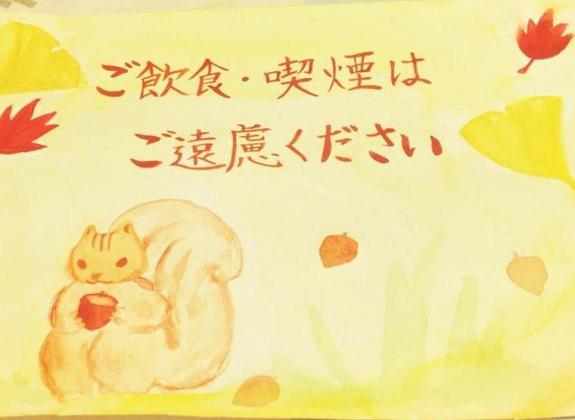 ご飲食・喫煙は
ご遠慮ください